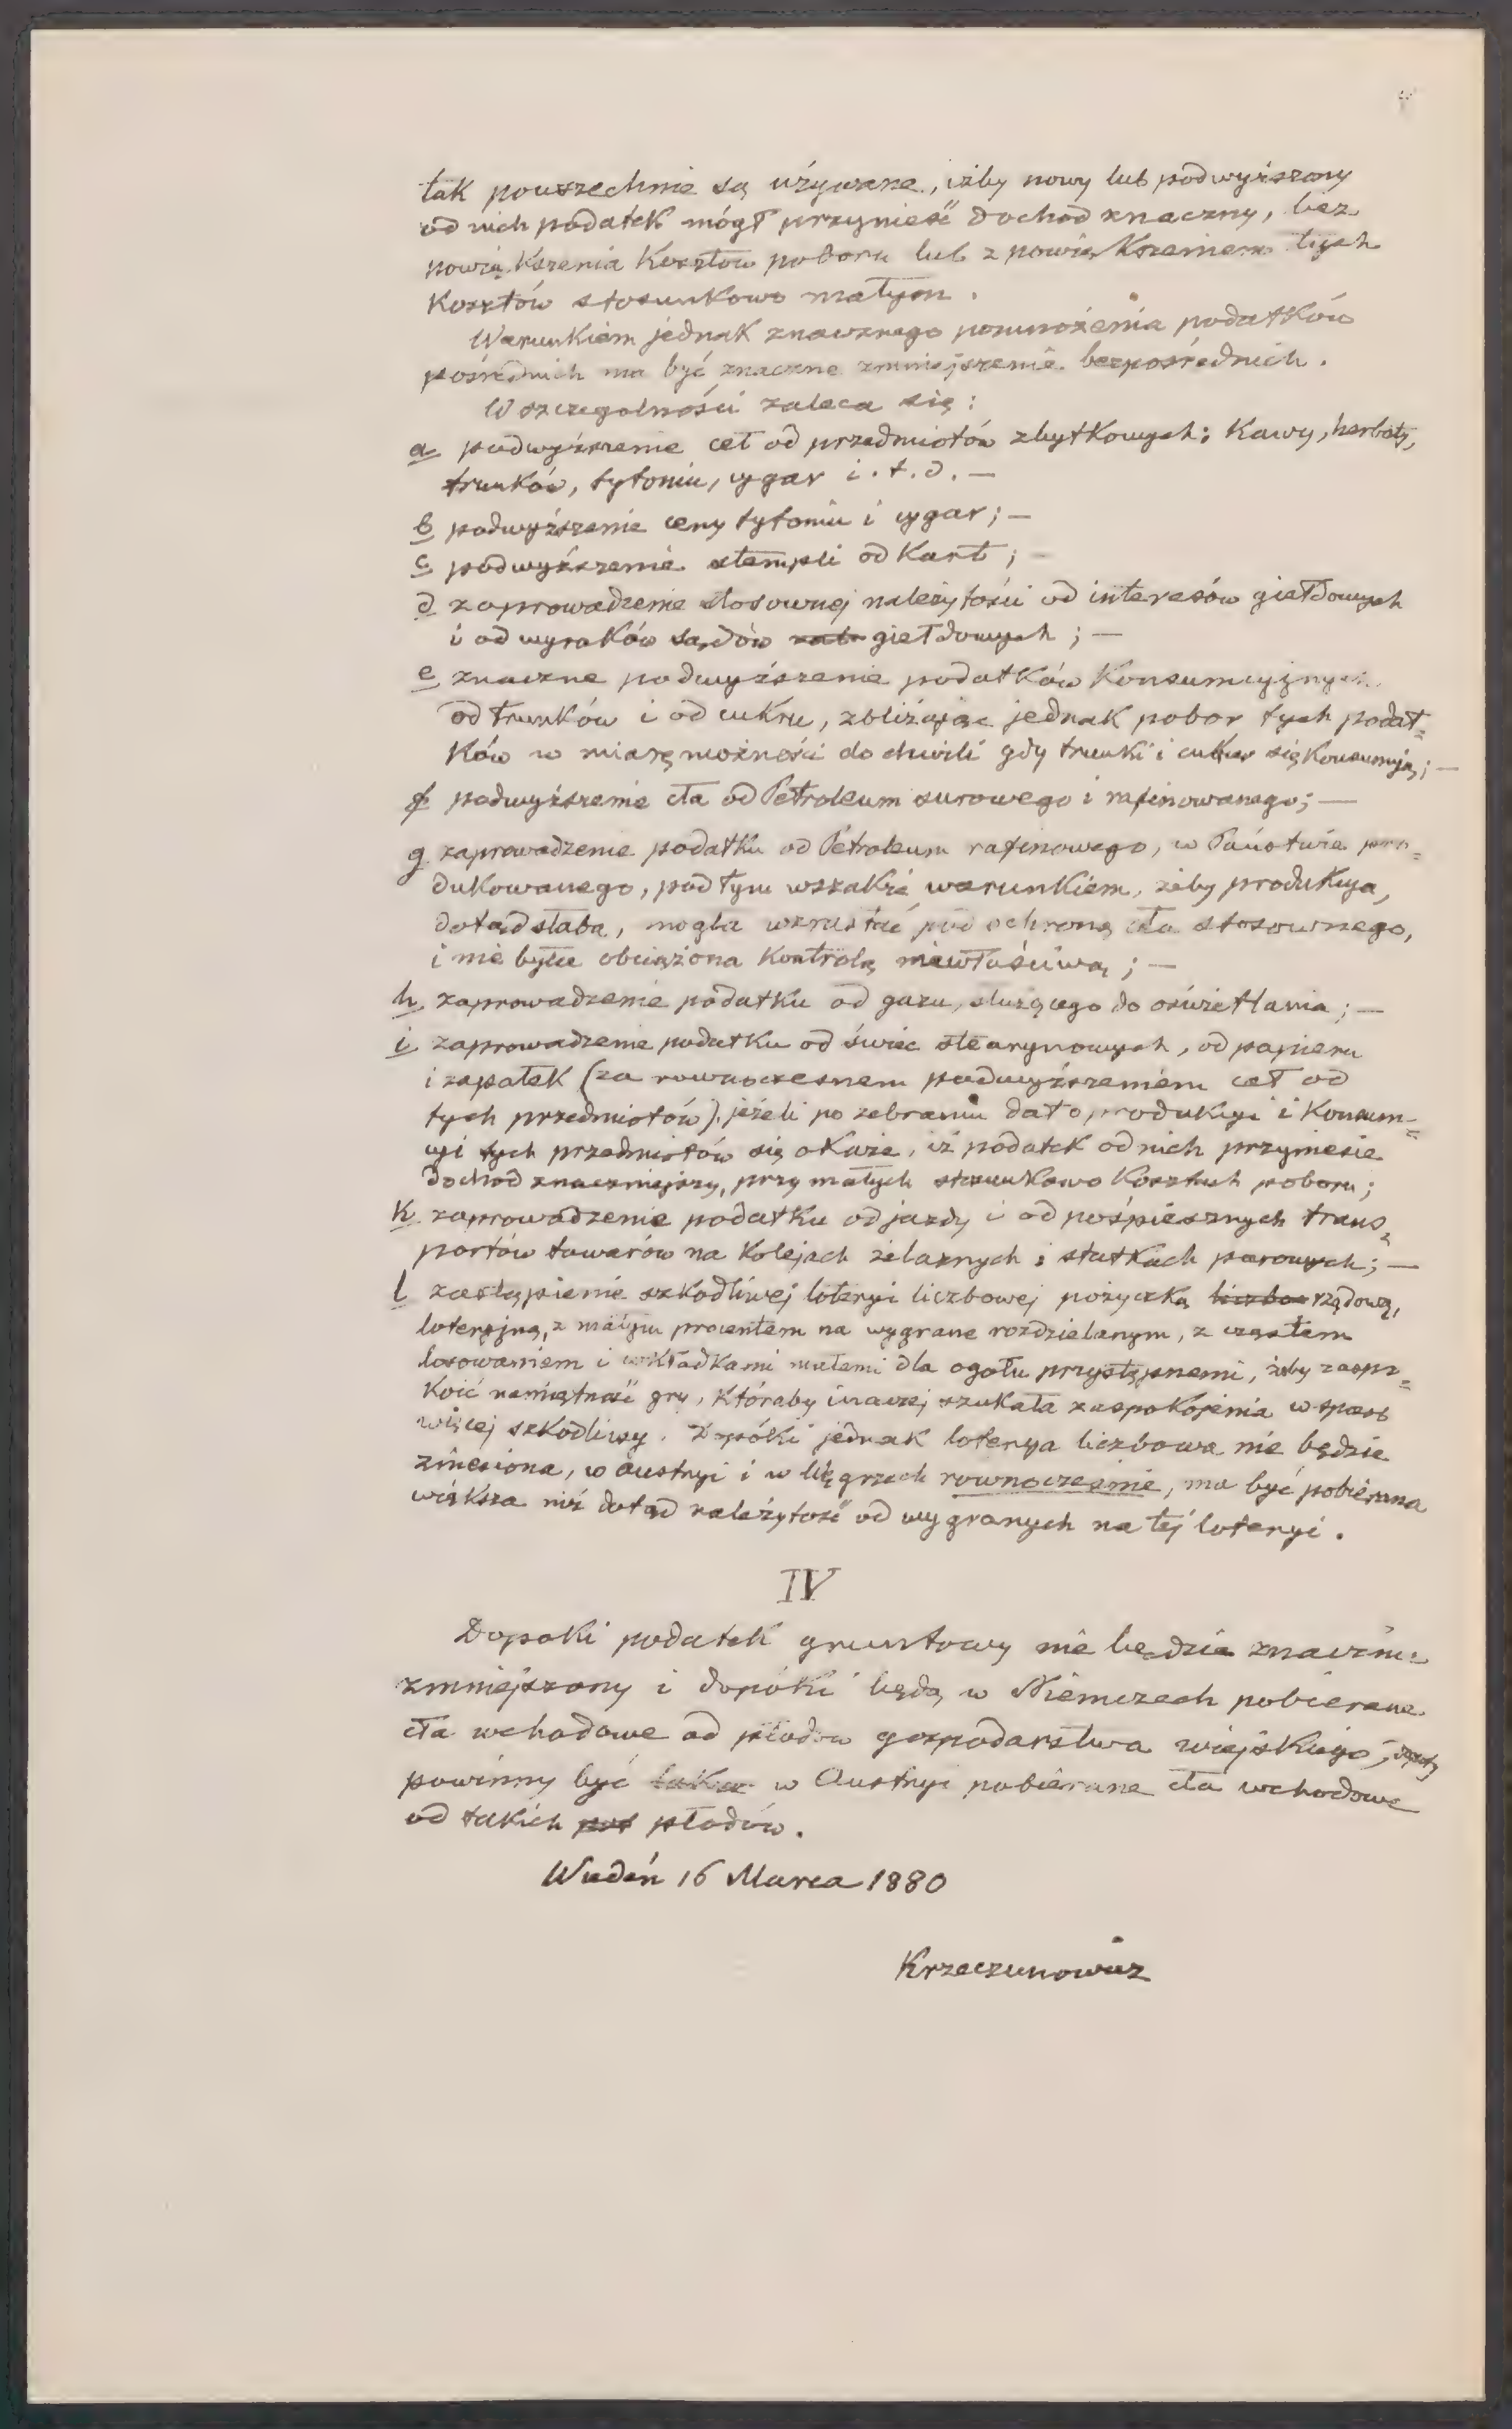 tak powszechnie są używane, iżby nowy lub podwyższony
od nich podatek mógł przynieść dochod znaczny, bez
powiększenia kosztów poboru lub z powiększeniem tych
kosztów stosunkowo małym.
Warunkiem jednak znacznego pomnożenia podatków
pośrednich ma być znaczne zmniejszenie bezpośrednich.
W szczegolności zaleca się:
a podwyższenie ceł od przedmiotów zbytkowych: kawy, herbaty,
trunków, tytoniu, cygar i.t.d. —
b podwyższenie ceny tytoniu i cygar; —
c podwyższenie stempli od kart; —
d zaprowadzenie stosownej należytości od interesów giełdowych
i od wyroków sądów giełdowych; —
e znaczne podwyższenie podatków konsumcyjnych
od trunków i od cukru, zbliżając jednak pobor tych podat=
ków w miarę możności do chwili gdy trunki i cukier się konsumują; —
f podwyższenie cła od Petroleum surowego i rafinowanego; —
g zaprowadzenie podatku od Petroleum rafinowego, w Państwie pro=
dukowanego, pod tym wszakże warunkiem, żeby produkcya,
dotąd słaba, mogła wzrastać pod ochroną cła stosownego,
i nie była obciążona kontrolą niewłaściwą; —
h zaprowadzenie podatku od gazu, służącego do oświetlania; —
i zaprowadzenie podatku od świec stearynowych, od papieru
i zapałek (za rownoczesnem podwyższeniem ceł od
tych przedmiotów), jeżeli po zebraniu dat o produkcyi i konsum=
cyi tych przedmiotów się okaże, iż podatek od nich przyniesie
dochod znaczniejszy, przy małych stosunkowo kosztach poboru;
k zaprowadzenie podatku od jazdy i od pośpiesznych trans=
portów towarów na kolejach żelaznych i statkach parowych; —
l zastąpienie szkodliwej loteryi liczbowej pożyczką rządową,
loteryjną, z małym procentem na wygrane rozdzielanym, z częstem
losowaniem i wkładkami małemi dla ogołu przystępnemi, żeby zaspo=
koić namiętność gry, któraby inaczej szukała zaspokojenia w sposob
więcej szkodliwy. Dopóki jednak loterya liczbowa nie będzie
zniesiona, w Austryi i w Węgrzech rownoczesnie, ma być pobierana
większa niż dotąd należytość od wygranych na tej loteryi.
IV
Dopoki podatek gruntowy nie będzie znacznie
zmniejszony i dopóki będą w Niemczech pobierane
cła wchodowe od płodów gospodarstwa wiejskiego,
powinny być w Austryi pobierane cła wchodowe
od takich płodów.
Wiedeń 16 Marca 1880
Krzeczunowicz